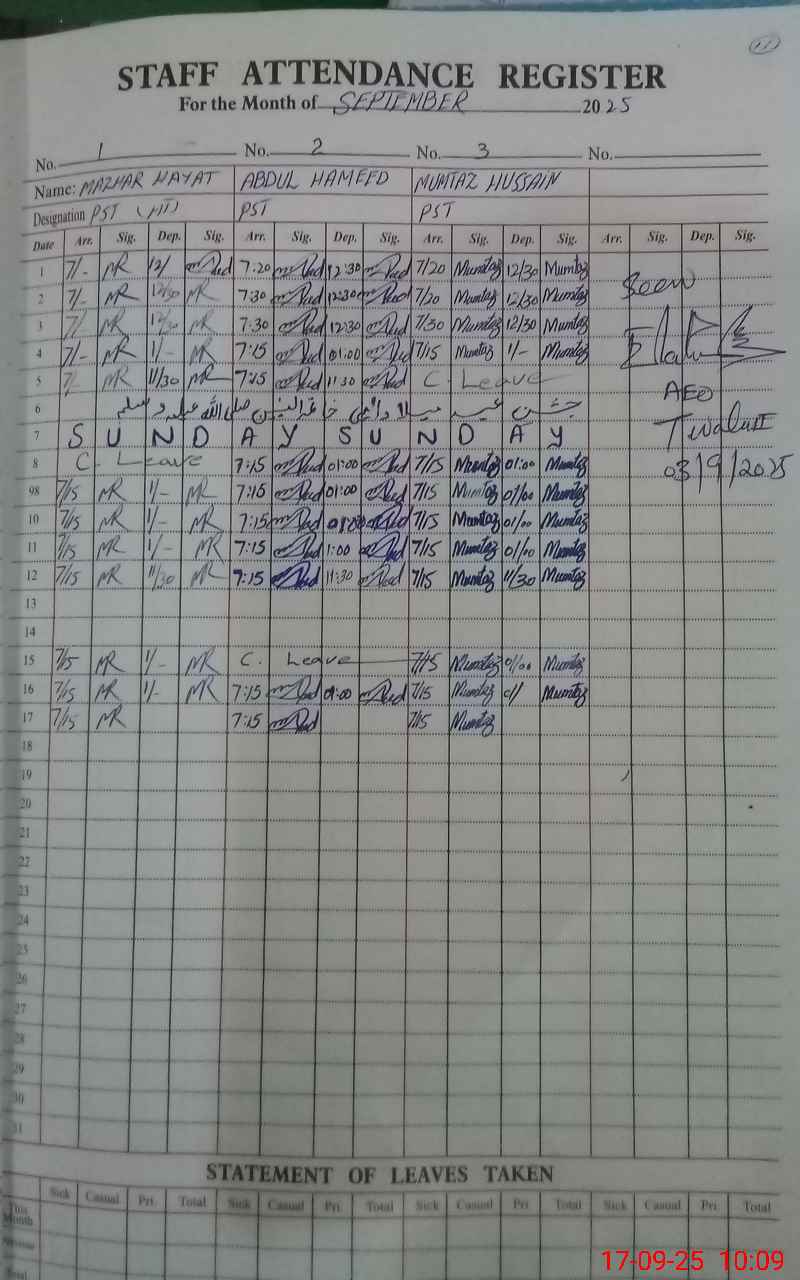 11
STAFF ATTENDANCE REGISTER
For the Month of SEPTEMBER 2025
No. 1 No. 2 No. 3 No.
Name: MAZHAR HAYAT ABDUL HAMEED MUMTAZ HUSSAIN
Designation PST (HT) PST PST
Date Arr. Sig. Dep. Sig. Arr. Sig. Dep. Sig. Arr. Sig. Dep. Sig. Arr. Sig. Dep. Sig.
1 7/- MR 12/ 7:20 12:30 7/20 Mumtaz 12/30 Mumtaz
2 7/- MR 12/30 MR 7:30 12:30 7/20 Mumtaz 12/30 Mumtaz Seen
3 7/- MR 12/30 MR 7:30 12:30 7/30 Mumtaz 12/30 Mumtaz
4 7/- MR 1/- MR 7:15 01:00 7/15 Mumtaz 1/- Mumtaz
5 7/- MR 11/30 MR 7:15 11:30 C. Leave AEO
6 جشن عید میلاد النبی خاتم النبیین صلی اللہ علیہ وسلم
7 S U N D A Y S U N D A Y
8 C. Leave 7:15 01:00 7/15 Mumtaz 01:00 Mumtaz 03/9/2025
98 7/15 MR 1/- MR 7:15 01:00 7/15 Mumtaz 01/00 Mumtaz
10 7/15 MR 1/- MR 7:15 01:00 7/15 Mumtaz 01/00 Mumtaz
11 7/15 MR 1/- MR 7:15 1:00 7/15 Mumtaz 01/00 Mumtaz
12 7/15 MR 11/30 MR 7:15 11:30 7/15 Mumtaz 11/30 Mumtaz
13
14
15 7/15 MR 1/- MR C. Leave 7/15 Mumtaz 01/00 Mumtaz
16 7/15 MR 1/- MR 7:15 01:00 7/15 Mumtaz 01/ Mumtaz
17 7/15 MR 7:15 7/15 Mumtaz
18
19
20
21
22
23
24
25
26
27
28
29
30
31
STATEMENT OF LEAVES TAKEN
Sick Casual Pri. Total Sick Casual Pri. Total Sick Casual Pri. Total Sick Casual Pri. Total
This Month
Total
17-09-25 10:09